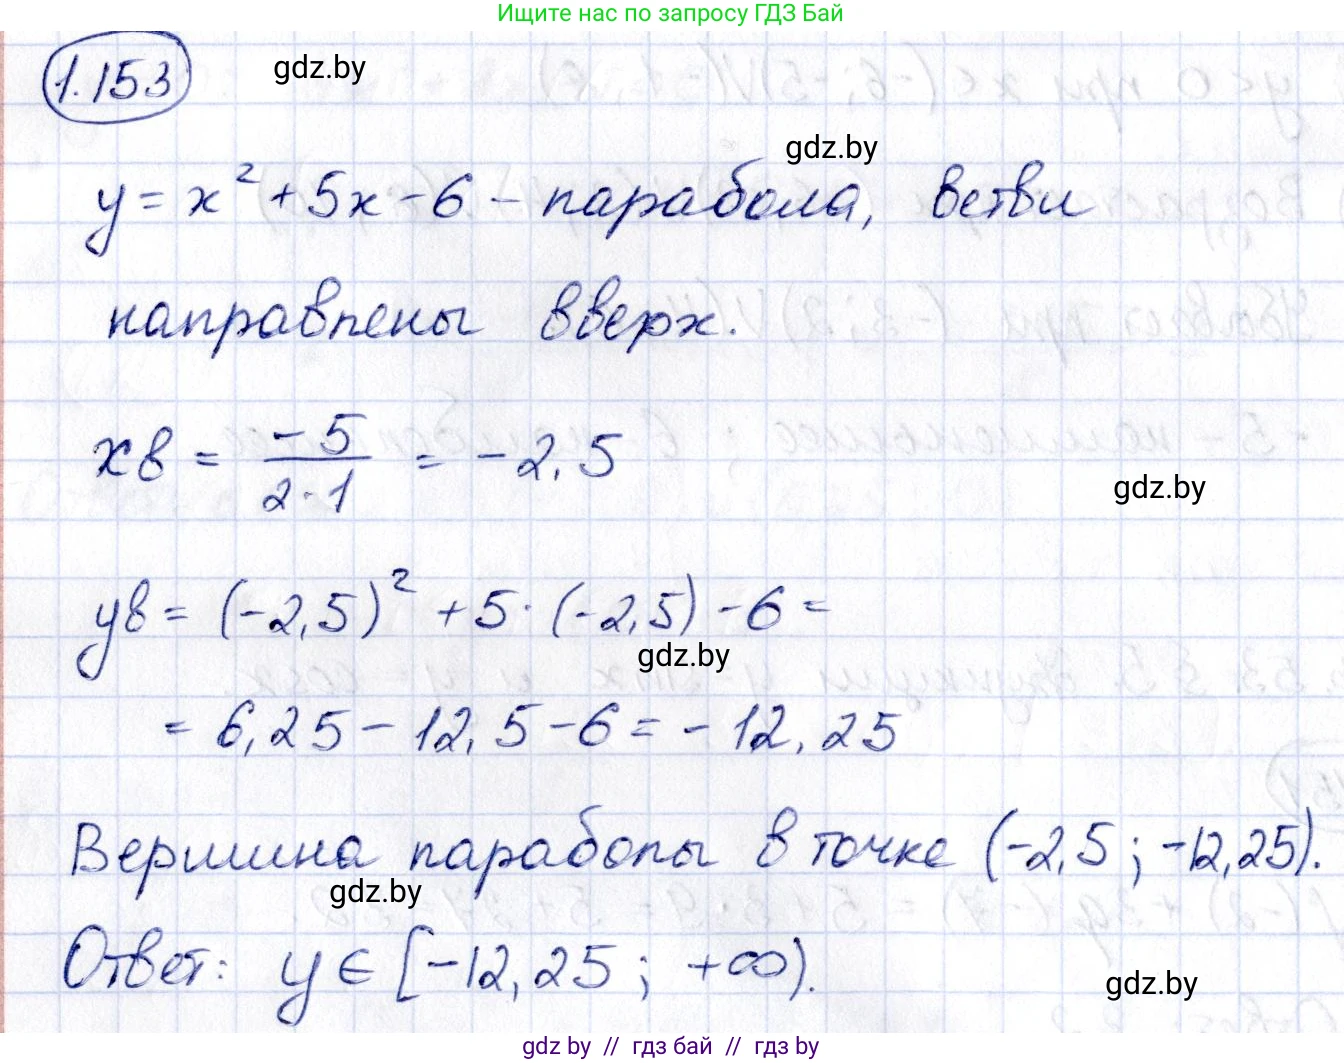 Ищите нас по запросу ГДЗ Бай
1.153
gdz.by
gdz.by
y = x² + 5x - 6 - парабола, ветви
направлены вверх.
xв = -5 / 2·1 = -2,5
gdz.by
yв = (-2,5)² + 5·(-2,5) - 6 =
gdz.by
= 6,25 - 12,5 - 6 = -12,25
Вершина параболы в точке (-2,5 ; -12,25).
gdz.by
Ответ: y ∈ [-12,25 ; +∞).
gdz.by
gdz by // гдз бай // гдз by